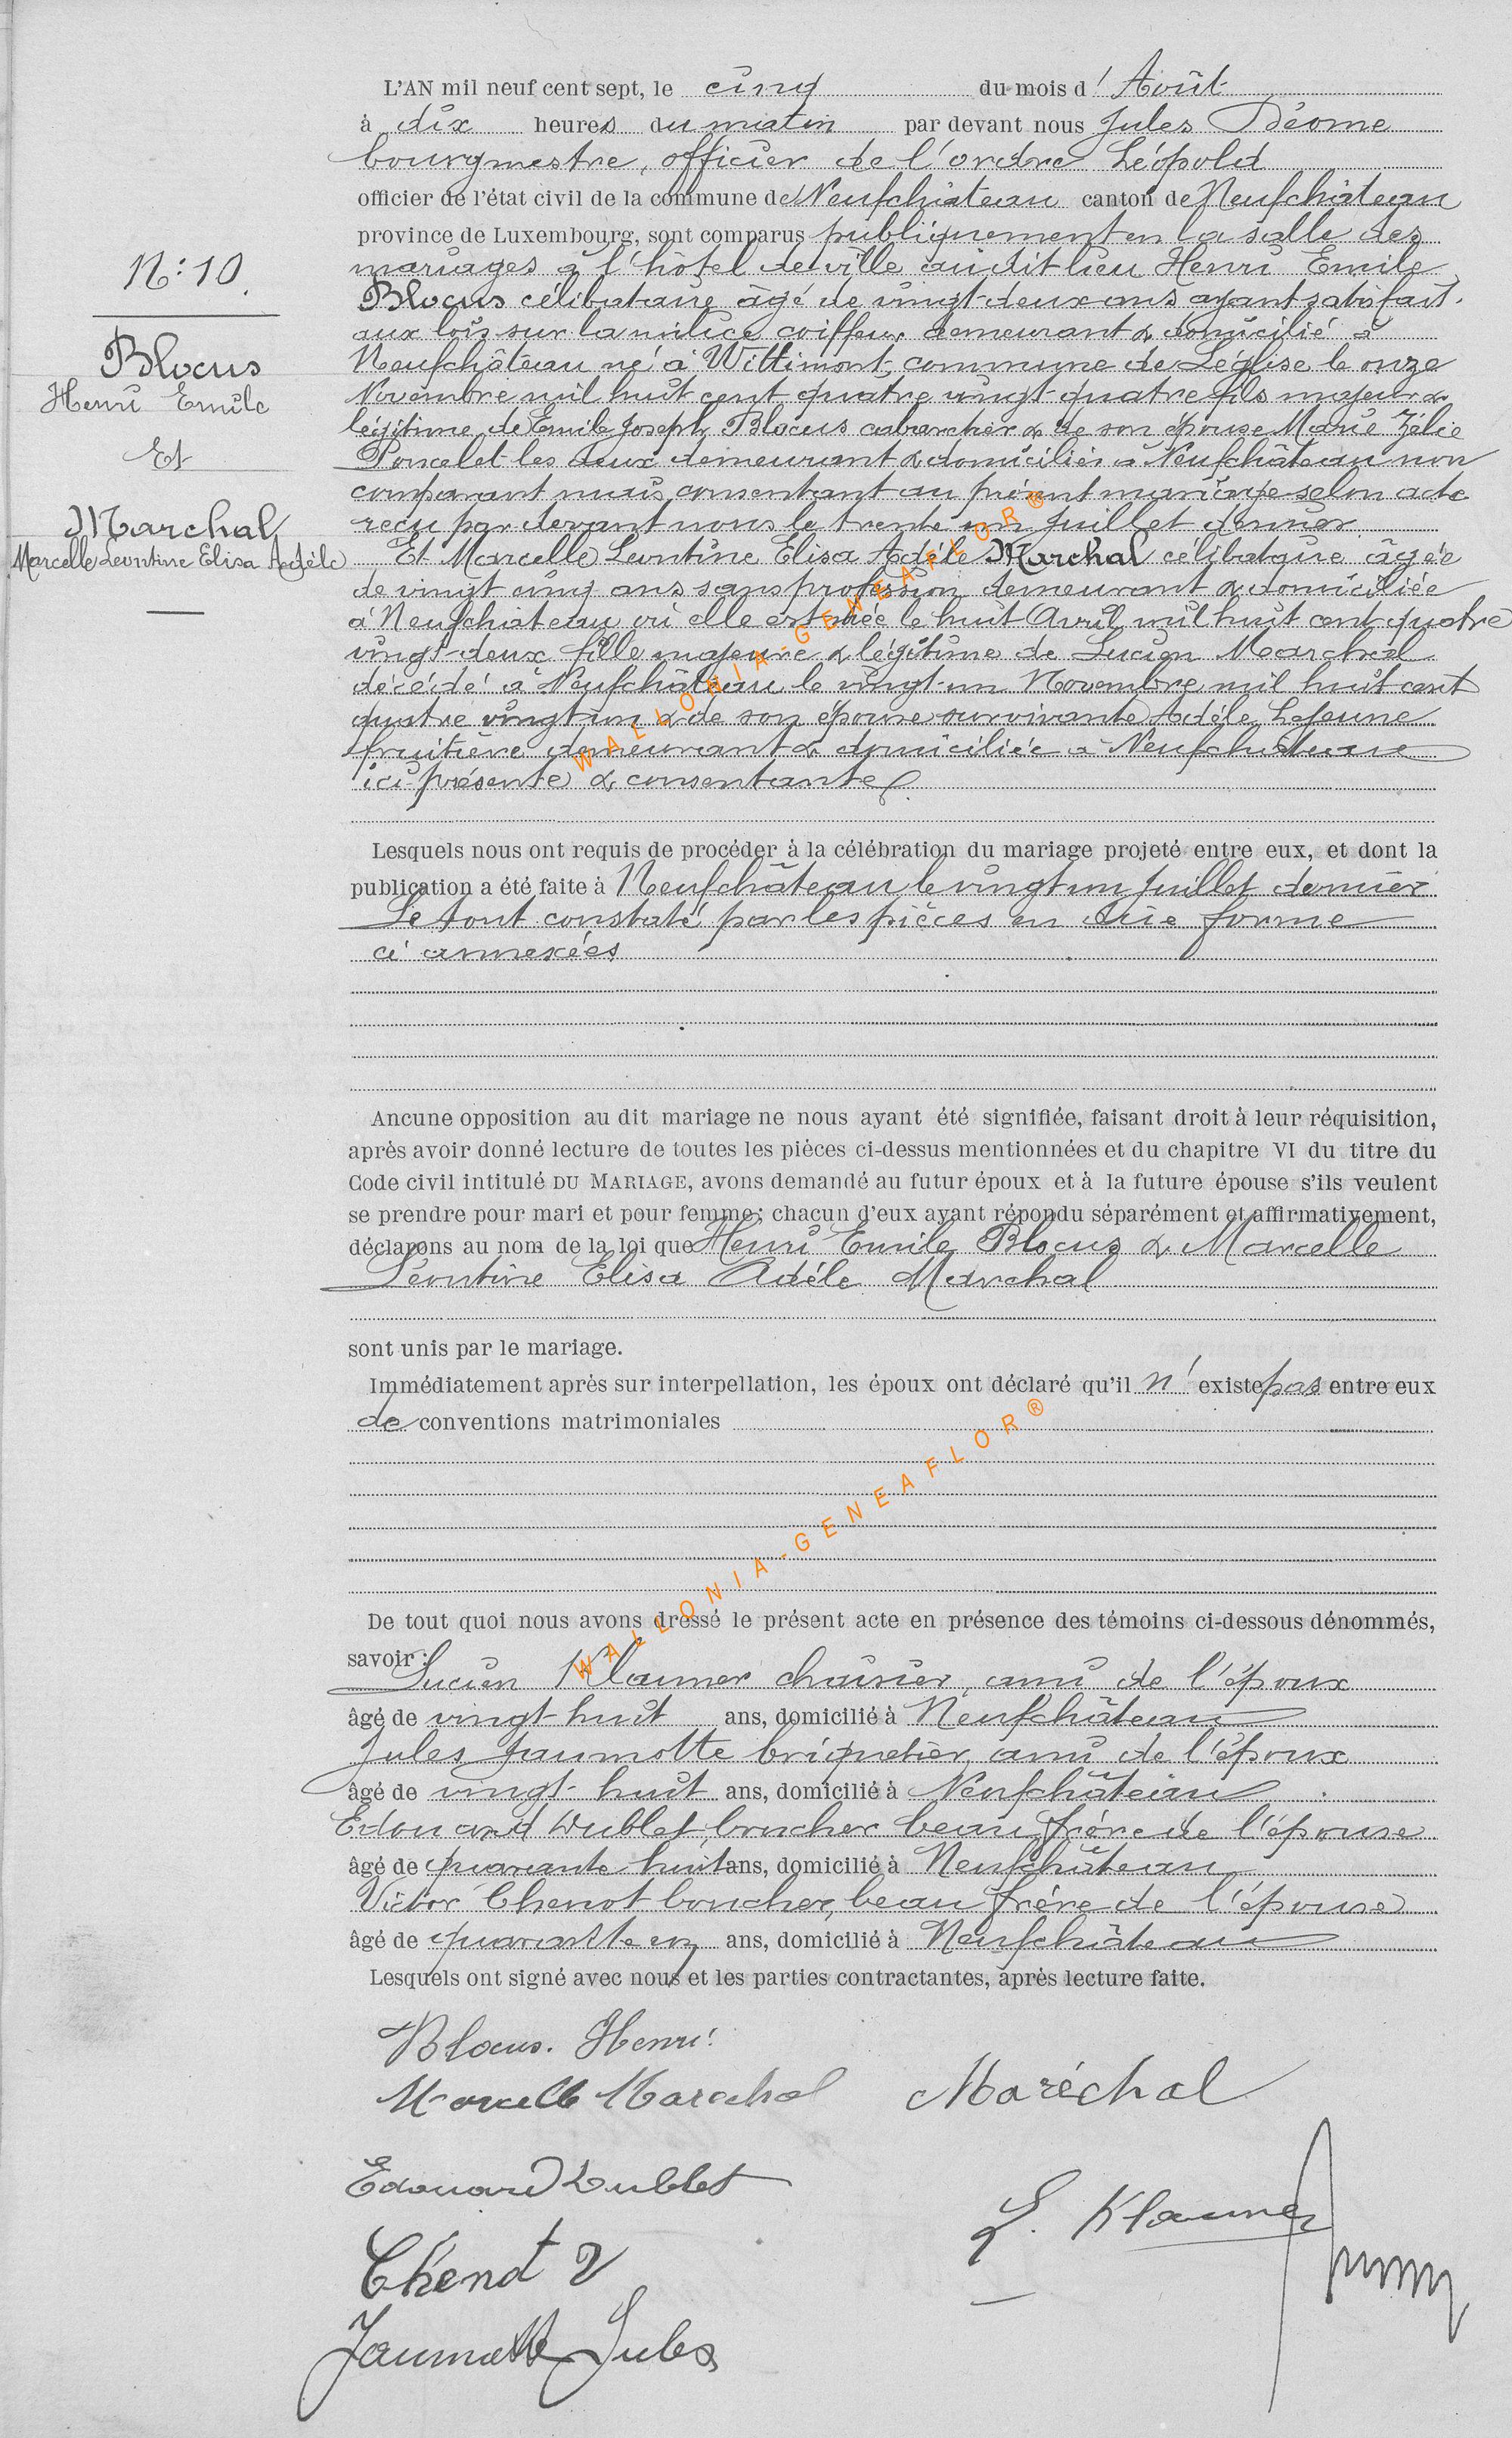 N: 10.
Blocus
Henri Emile
Et
Marchal
Marcelle Leontine Elisa Adèle
L'AN mil neuf cent sept, le cinq du mois d' Août
à dix heures du matin par devant nous Jules Déome
bourgmestre, officier de l'ordre Léopold
officier de l'état civil de la commune de Neufchâteau canton de Neufchâteau
province de Luxembourg, sont comparus publiquement en la salle des
mariages à l'hôtel de ville au dit lieu Henri Emile
Blocus célibataire âgé de vingt-deux ans ayant satisfait
aux lois sur la milice coiffeur demeurant & domicilié à
Neufchâteau né à Wittimont, commune de Léglise le onze
Novembre mil huit cent quatre vingt-quatre fils majeur &
légitime de Emile Joseph Blocus cabaretier & de son épouse Marie Zélie
Poncelet les deux demeurant & domiciliés à Neufchâteau non
comparant mais consentant au présent mariage selon acte
reçu par devant nous le trente un Juillet dernier
Et Marcelle Leontine Elisa Adèle Marchal célibataire âgée
de vingt cinq ans sans profession demeurant & domiciliée
à Neufchâteau où elle est née le huit Avril mil huit cent quatre
vingt-deux fille majeure & légitime de Lucien Marchal
décédé à Neufchâteau le vingt-un Novembre mil huit cent
quatre vingt un & de son épouse survivante Adèle Lejeune
fruitière demeurant & domiciliée à Neufchâteau
ici présente & consentante
Lesquels nous ont requis de procéder à la célébration du mariage projeté entre eux, et dont la
publication a été faite à Neufchâteau le vingt un Juillet dernier
Le tout constaté par les pièces en due forme
ci annexées
Aucune opposition au dit mariage ne nous ayant été signifiée, faisant droit à leur réquisition,
après avoir donné lecture de toutes les pièces ci-dessus mentionnées et du chapitre VI du titre du
Code civil intitulé DU MARIAGE, avons demandé au futur époux et à la future épouse s'ils veulent
se prendre pour mari et pour femme; chacun d'eux ayant répondu séparément et affirmativement,
déclarons au nom de la loi que Henri Emile Blocus & Marcelle
Léontine Elisa Adèle Marchal
sont unis par le mariage.
Immédiatement après sur interpellation, les époux ont déclaré qu'il n' existe pas entre eux
de conventions matrimoniales
De tout quoi nous avons dressé le présent acte en présence des témoins ci-dessous dénommés,
savoir:
Lucien Klauner chaisier, ami de l'époux
âgé de vingt-huit ans, domicilié à Neufchâteau
Jules Jaumotte briquetier, ami de l'époux
âgé de vingt-huit ans, domicilié à Neufchâteau
Edouard Dublet, boucher beau frère de l'épouse
âgé de quarante huit ans, domicilié à Neufchâteau
Victor Chenot boucher, beau frère de l'épouse
âgé de quarante ans, domicilié à Neufchâteau
Lesquels ont signé avec nous et les parties contractantes, après lecture faite.
Blocus. Henri
Marcelle Marechal Maréchal
Edouard Dublet
L. Klauner
Chenot V
Jaumotte Jules
WALLONIA-GENEAFLOR®
WALLONIA-GENEAFLOR®